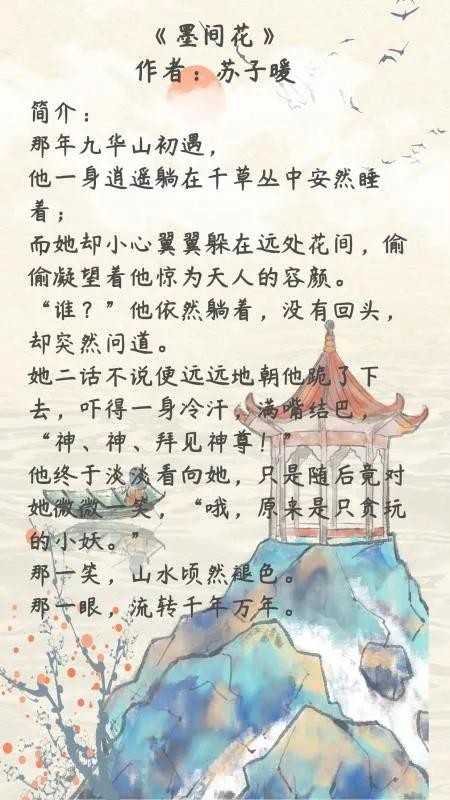 《墨间花》
作者：苏子暖
简介：
那年九华山初遇，
他一身逍遥躺在千草丛中安然睡
着；
而她却小心翼翼躲在远处花间，偷
偷凝望着他惊为天人的容颜。
“谁？”他依然躺着，没有回头，
却突然问道。
她二话不说便远远地朝他跪了下
去，吓得一身冷汗，满嘴结巴，
“神、神、拜见神尊！”
他终于淡淡看向她，只是随后竟对
她微微一笑，“哦，原来是只贪玩
的小妖。”
那一笑，山水顷然褪色。
那一眼，流转千年万年。